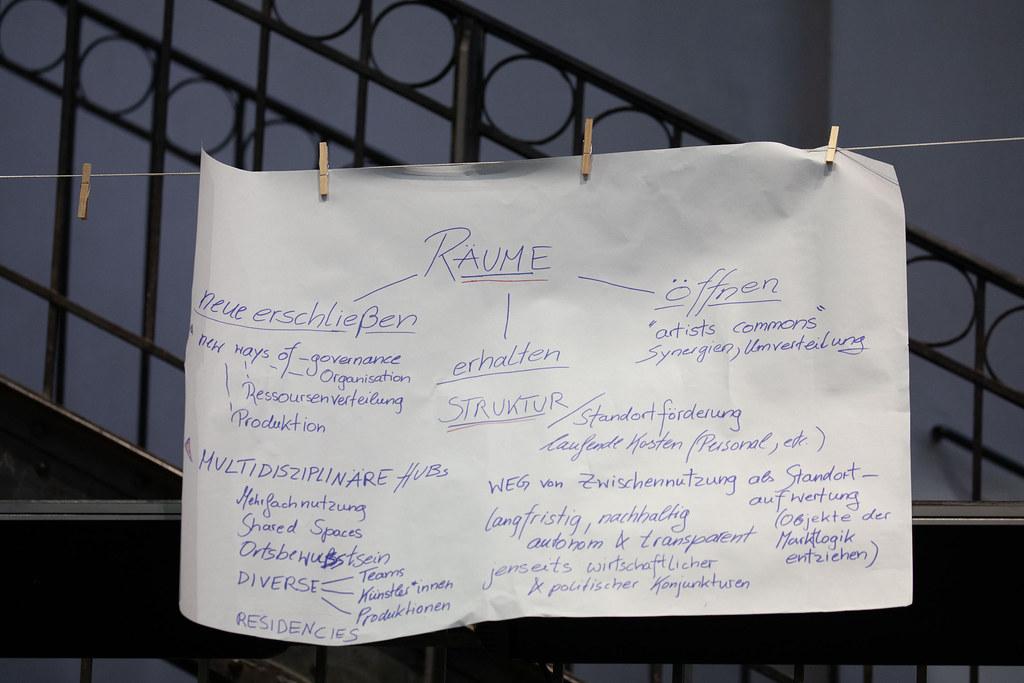 RÄUME
neue erschließen
new ways of - governance
Organisation
Ressoursenverteilung
Produktion
MULTIDISZIPLINÄRE HUBs
Mehrfachnutzung
Shared Spaces
Ortsbewußtsein
DIVERSE
Teams
Künstler*innen
Produktionen
RESIDENCIES
erhalten
STRUKTUR / Standortförderung
laufende Kosten (Personal, etc.)
WEG von Zwischennutzung als Standort-
aufwertung
(Objekte der
Marktlogik
entziehen)
langfristig, nachhaltig
autonom & transparent
jenseits wirtschaftlicher
& politischer Konjunkturen
öffnen
"artists commons"
Synergien, Umverteilung